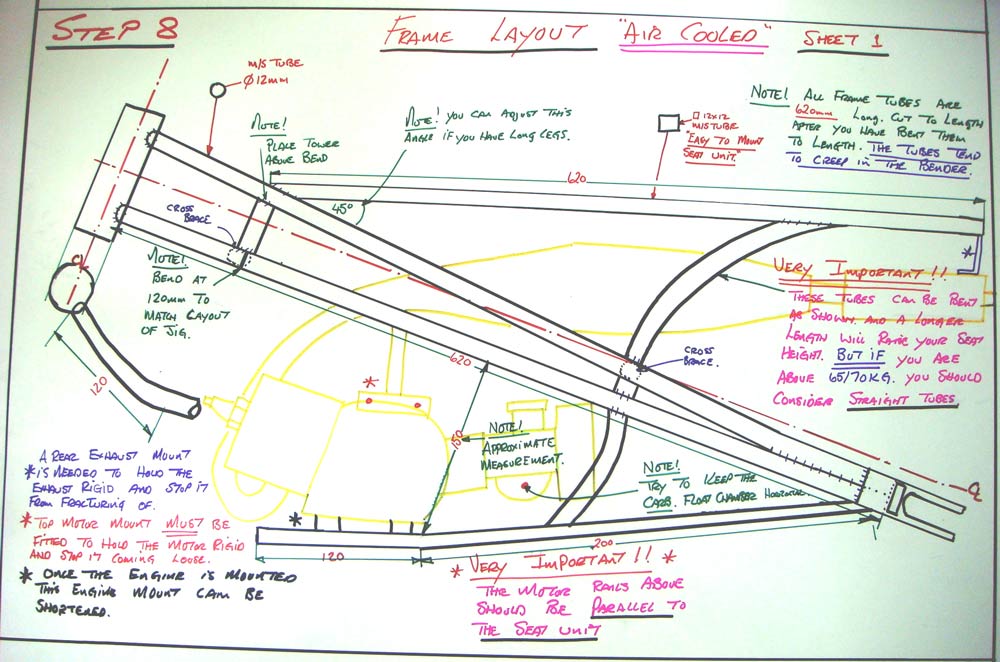 STEP 8
FRAME LAYOUT "AIR COOLED" SHEET 1
M/S TUBE
Ø 12mm
NOTE!
PLACE TOWER
ABOVE BEND
NOTE! YOU CAN ADJUST THIS
ANGLE IF YOU HAVE LONG LEGS.
□ 12x12
M/S TUBE
"EASY TO MOUNT
SEAT UNIT."
NOTE! ALL FRAME TUBES ARE
620mm LONG. CUT TO LENGTH
AFTER YOU HAVE BENT THEM
TO LENGTH. THE TUBES TEND
TO CREEP IN THE BENDER.
620
45°
CROSS
BRACE
*
NOTE!
BEND AT
120mm TO
MATCH LAYOUT
OF JIG.
VERY IMPORTANT!!
THESE TUBES CAN BE BENT
AS SHOWN AND A LONGER
LENGTH WILL RAISE YOUR SEAT
HEIGHT. BUT IF YOU ARE
ABOVE 65/70KG. YOU SHOULD
CONSIDER STRAIGHT TUBES.
620
CROSS
BRACE.
120
*
150
NOTE!
APPROXIMATE
MEASUREMENT.
NOTE!
TRY TO KEEP THE
CARB. FLOAT CHAMBER HORIZONTAL
A REAR EXHAUST MOUNT
* IS NEEDED TO HOLD THE
EXHAUST RIGID AND STOP IT
FROM FRACTURING OF.
* TOP MOTOR MOUNT MUST BE
FITTED TO HOLD THE MOTOR RIGID
AND STOP IT COMING LOOSE.
* ONCE THE ENGINE IS MOUNTED
THIS ENGINE MOUNT CAN BE
SHORTENED.
*
120
200
* VERY IMPORTANT!! *
THE MOTOR RAILS ABOVE
SHOULD BE PARALLEL TO
THE SEAT UNIT